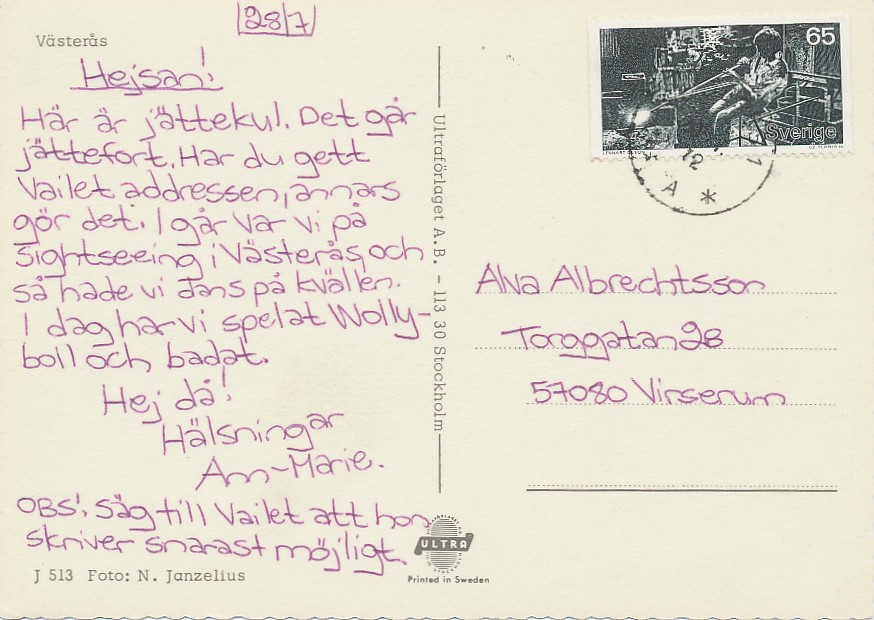 28/7
Västerås
Hejsan!
Här är jättekul. Det går
jättefort. Har du gett
Vailet addressen, annars
gör det. I går var vi på
sightseeing i Västerås, och
så hade vi dans på kvällen.
I dag har vi spelat Wolly-
boll och badat.
Hej då!
Hälsningar
Ann-Marie.
OBS! Säg till Vailet att hon
skriver snarast möjligt.
J 513 Foto: N. Janzelius
Ultraförlaget A.B. - 113 30 Stockholm
ULTRA
Printed in Sweden
65
Sverige
12
A *
Alva Albrechtsson
Torggatan 28
57080 Virserum